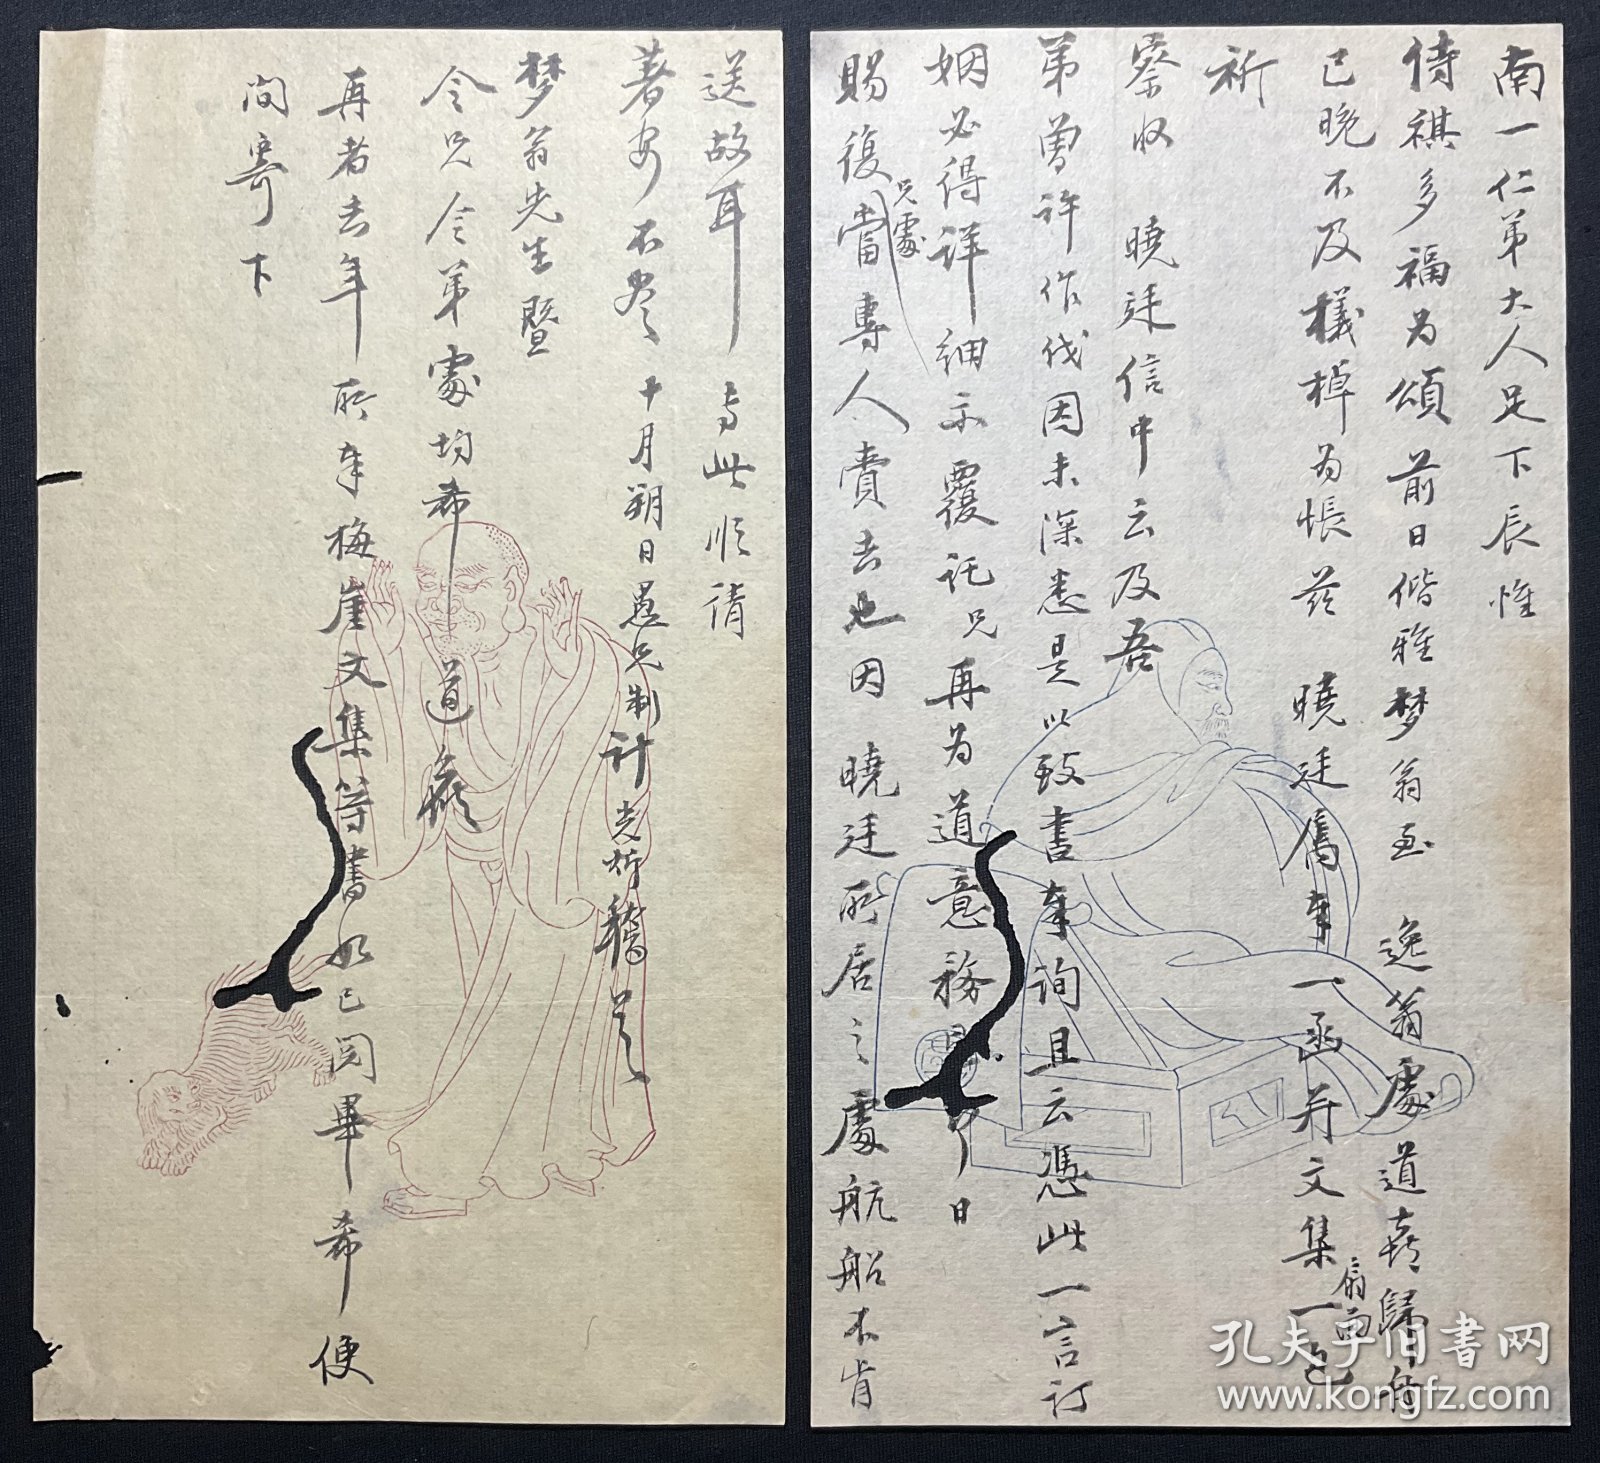 南一仁弟大人足下辰惟
侍祺多福为頌前日偕雅梦翁至逸翁處道喜歸舟
已晚不及檥棹为悵茲曉廷寓書一函并文集一包
扇面
祈
察收曉廷信中云及吾
弟曾许作伐因未深悉是以致書奉询且云憑此一言訂
姻必得詳细示覆託兄再为道意務
日
賜復當專人賫去也因曉廷所居之處航船不肯
兄處
送故耳专此順請
著安不尽十月朔日愚兄制计光炘稽
梦翁先生暨
令兄令弟處均希道候
再者去年所奉梅崖文集等書如已阅畢希便
问寄下
孔夫子旧书网
www.kongfz.com